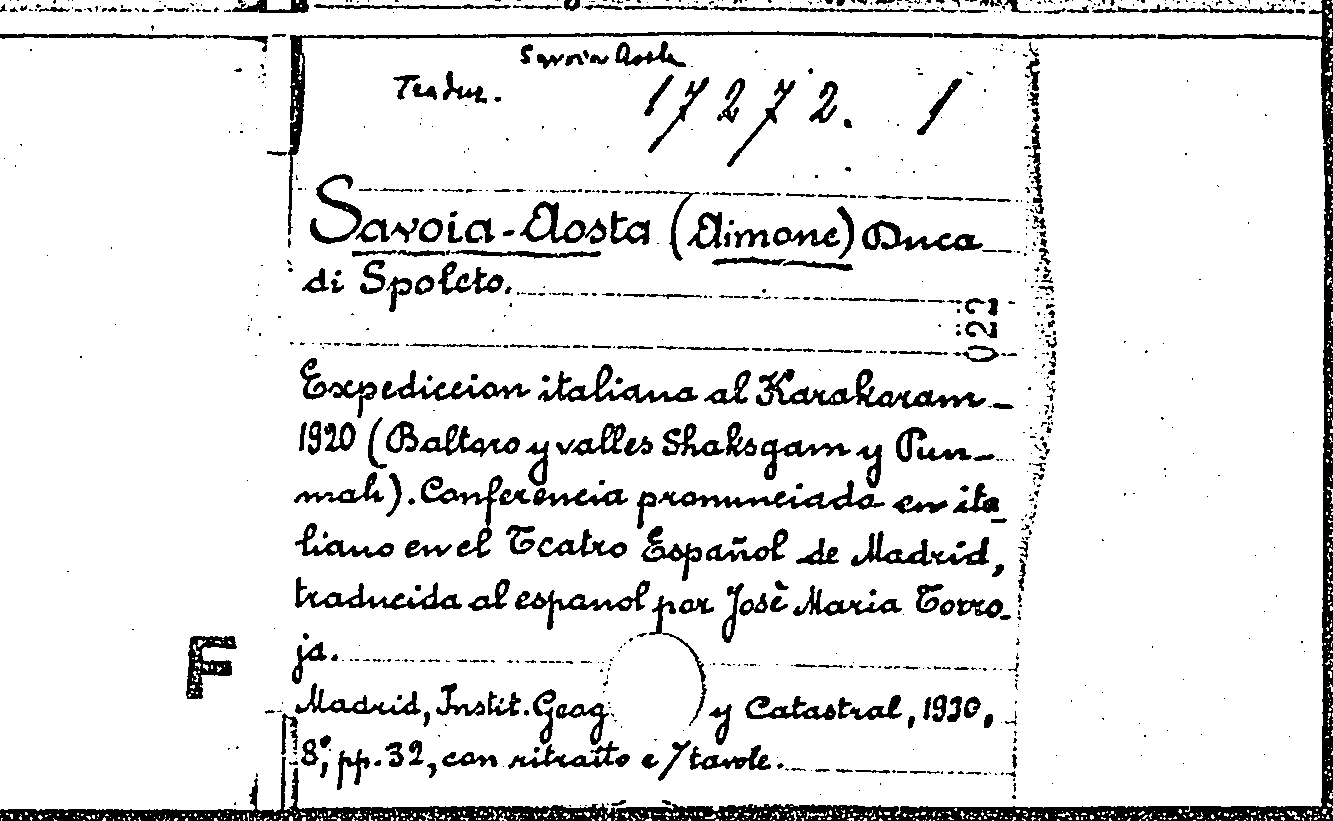 Savoia Aosta
Traduz.
17272. 1
Savoia-Aosta (Aimone) Duca
di Spoleto.
022
Expediccion italiana al Karakoram
1920 (Baltoro y valles Shaksgam y Pun-
mah). Conferencia pronunciada en ita
liano en el Teatro Español de Madrid,
traducida al espanol por Josè Maria Torro-
ja.
F
Madrid, Instit. Geog y Catastral, 1930,
8°, pp. 32, con ritratto e 7 tavole.